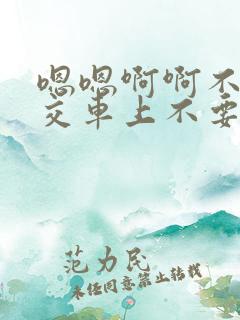 嗯嗯啊啊不
交车上不要
范力民
未经同意禁止转载